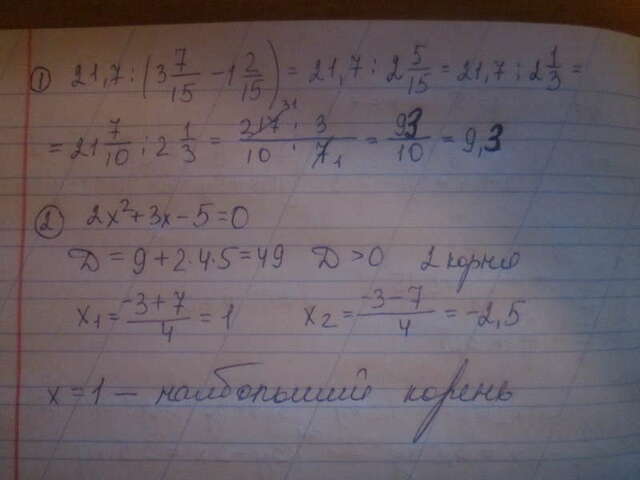 ① 21,7 : (3 7/15 − 1 2/15) = 21,7 : 2 5/15 = 21,7 : 2 1/3 =
= 21 7/10 : 2 1/3 = 217 31 · 3 / 10 · 7 1 = 93/10 = 9,3
② 2x² + 3x − 5 = 0
D = 9 + 2·4·5 = 49 D > 0 2 корня
x₁ = −3 + 7 / 4 = 1 x₂ = −3 − 7 / 4 = −2,5
x = 1 − наибольший корень